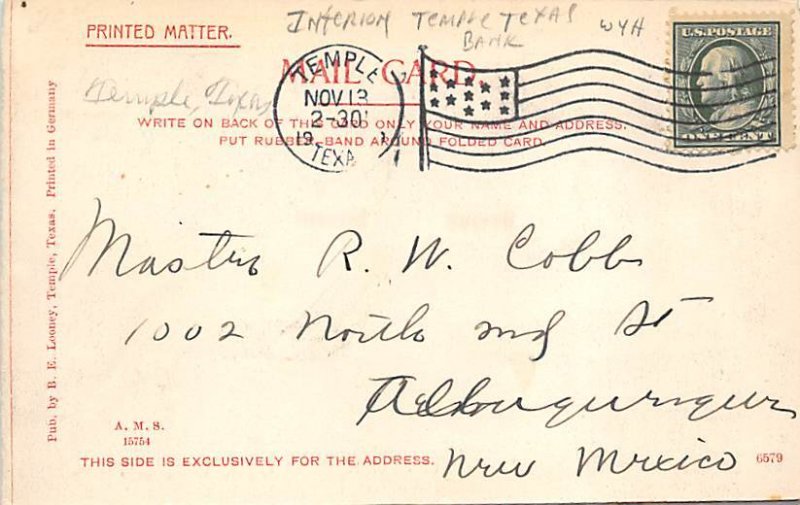 PRINTED MATTER.
INTERIOR TEMPLE TEXAS
BANK
WYH
U.S. POSTAGE
ONE CENT
MAIL CARD.
TEMPLE
NOV 13
2-30
19
TEXA
Temple, Texas
WRITE ON BACK OF THIS CARD ONLY YOUR NAME AND ADDRESS.
PUT RUBBER-BAND AROUND FOLDED CARD.
Pub. by B. E. Looney, Temple, Texas. Printed in Germany
Master R. W. Cobb
1002 North 2nd St
Albuquerque
New Mexico
A. M. S.
15754
THIS SIDE IS EXCLUSIVELY FOR THE ADDRESS.
6579